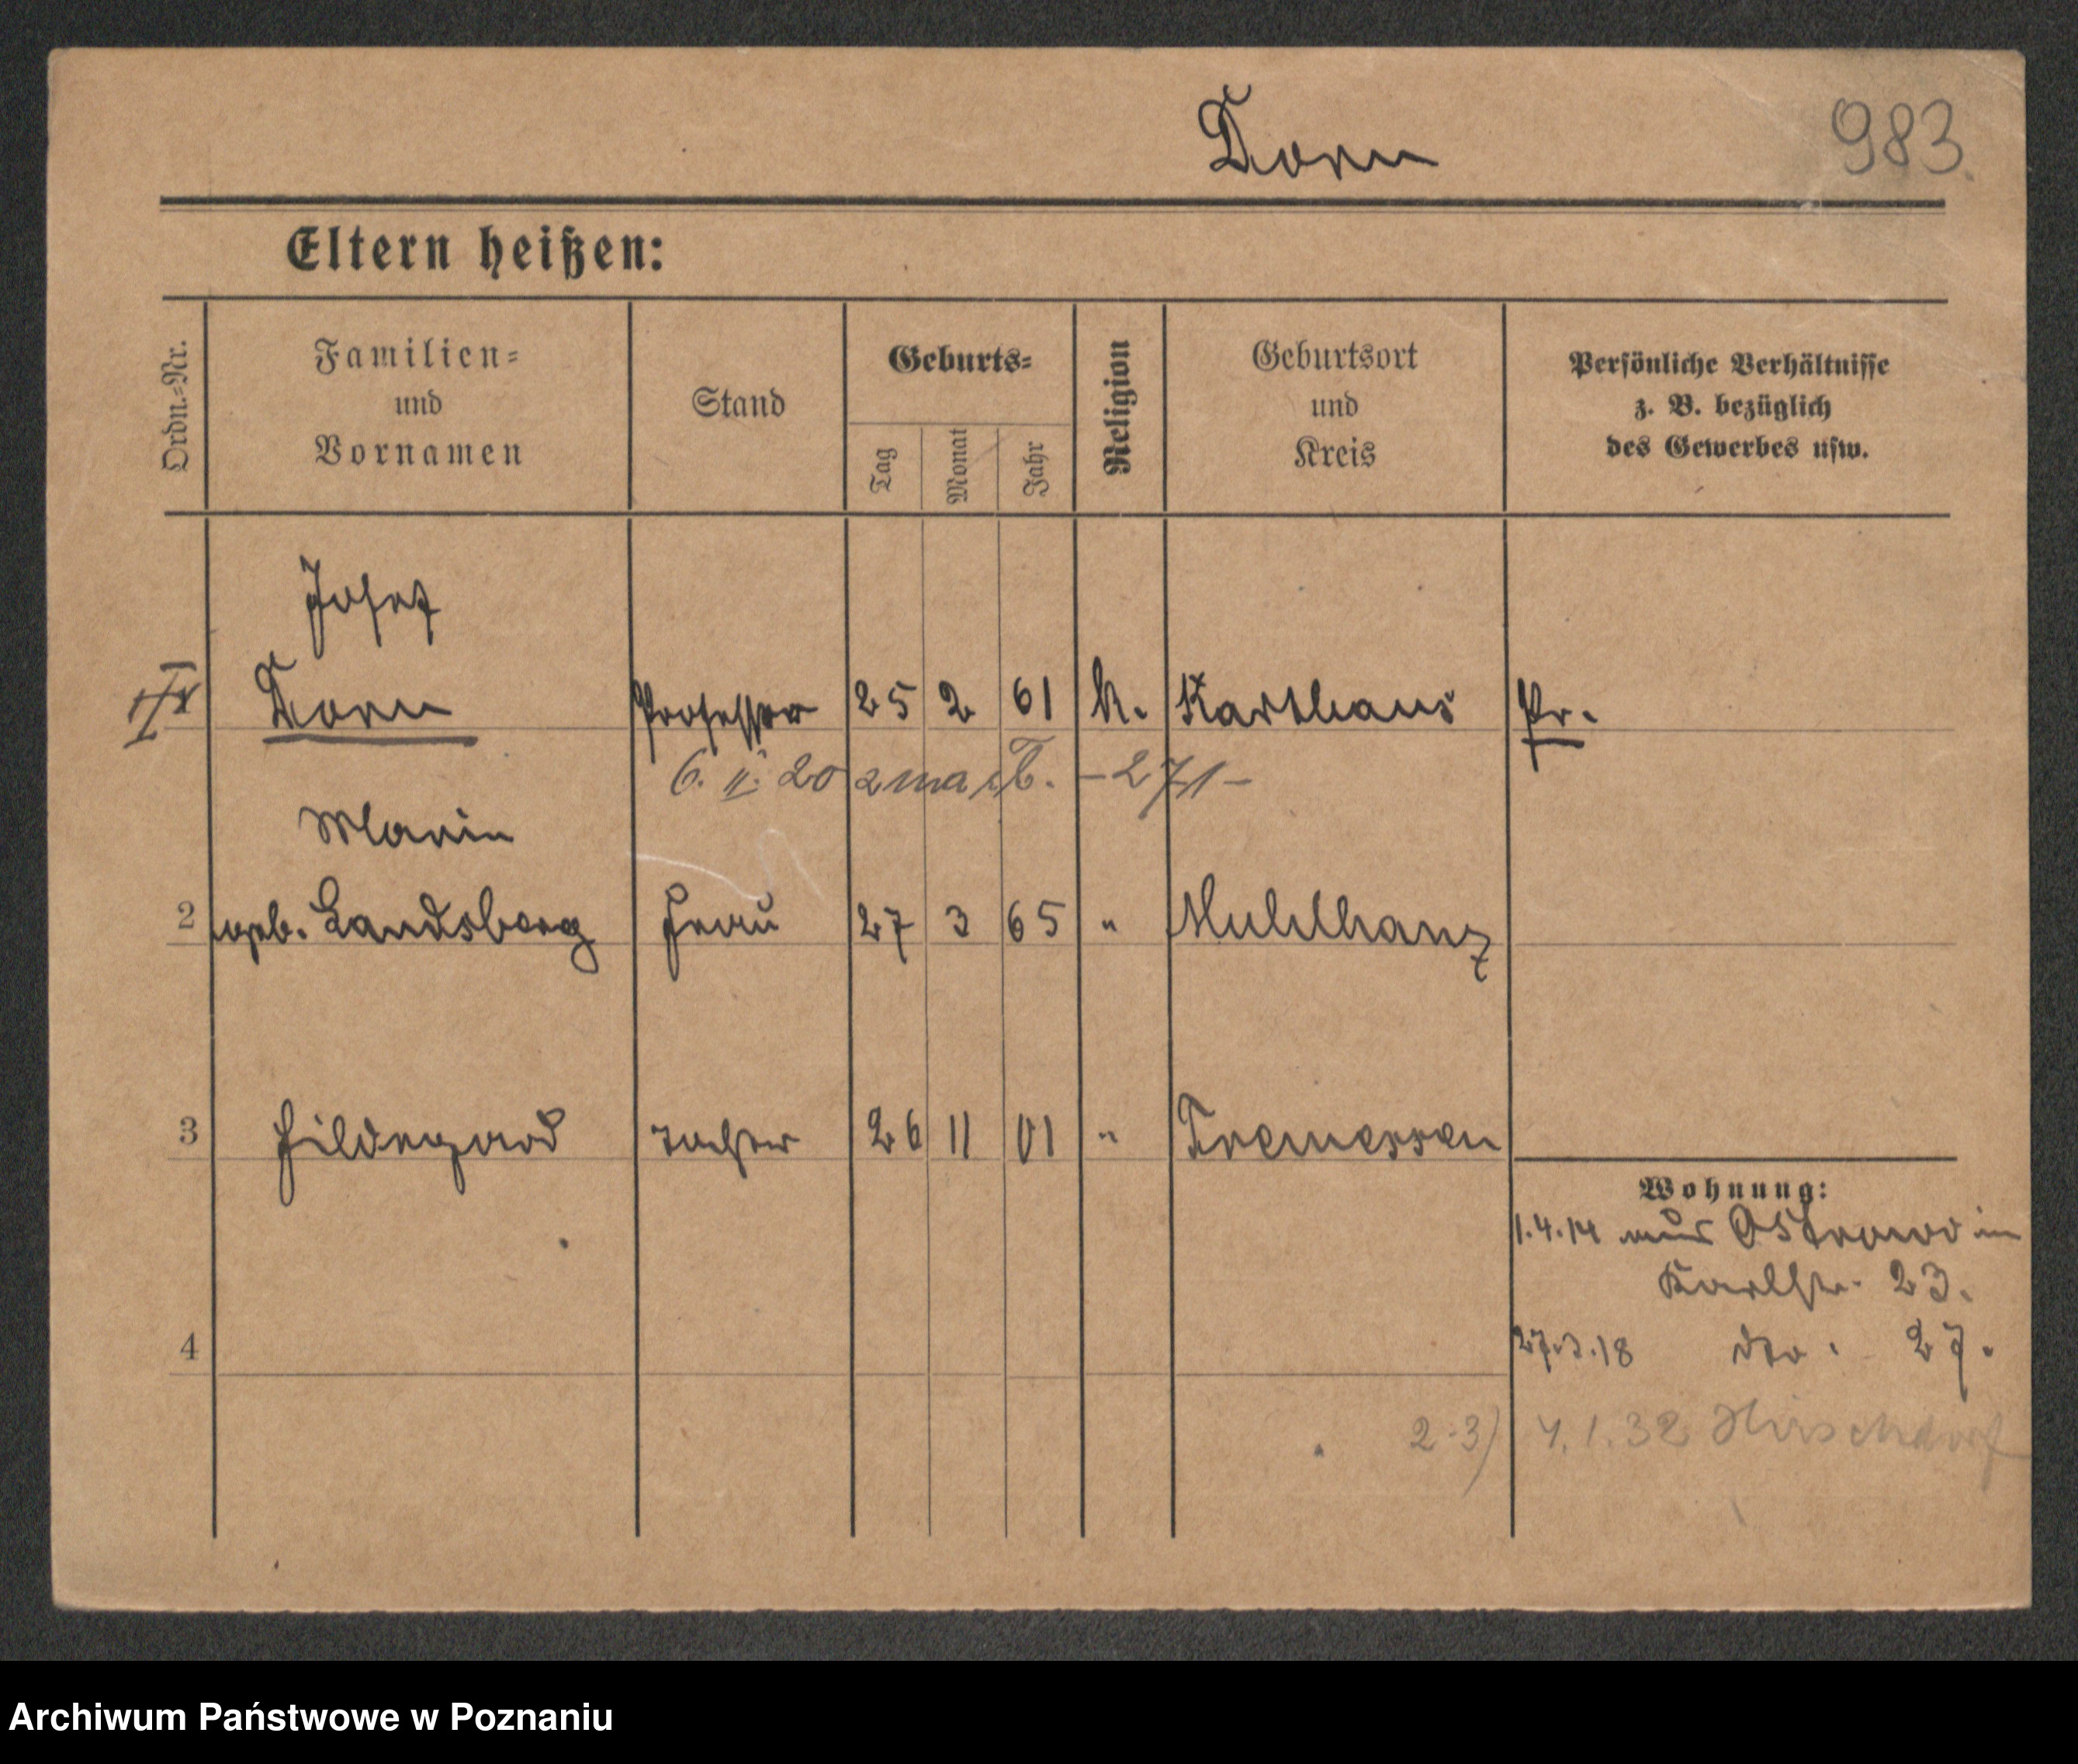 Dorn
983.
Eltern heißen:
Ordn.=Nr.
Familien=
und
Vornamen
Stand
Geburts=
Tag
Monat
Jahr
Religion
Geburtsort
und
Kreis
Persönliche Verhältnisse
z. B. bezüglich
des Gewerbes usw.
Josef
Dorn Professor 25 2 61 k. Karthaus Pr.
6. II. 20 zmarł. - 271 -
Marie
2 geb. Landsberg Frau 27 3 65 "
3 Hildegard Tochter 26 11 01 " Tremessen
Wohnung:
1.4.14 aus Ostrowo in
Karlstr. 23.
4
27.3.18 dto. 27.
2-3) 4.1.32 Hirschdorf
Archiwum Państwowe w Poznaniu